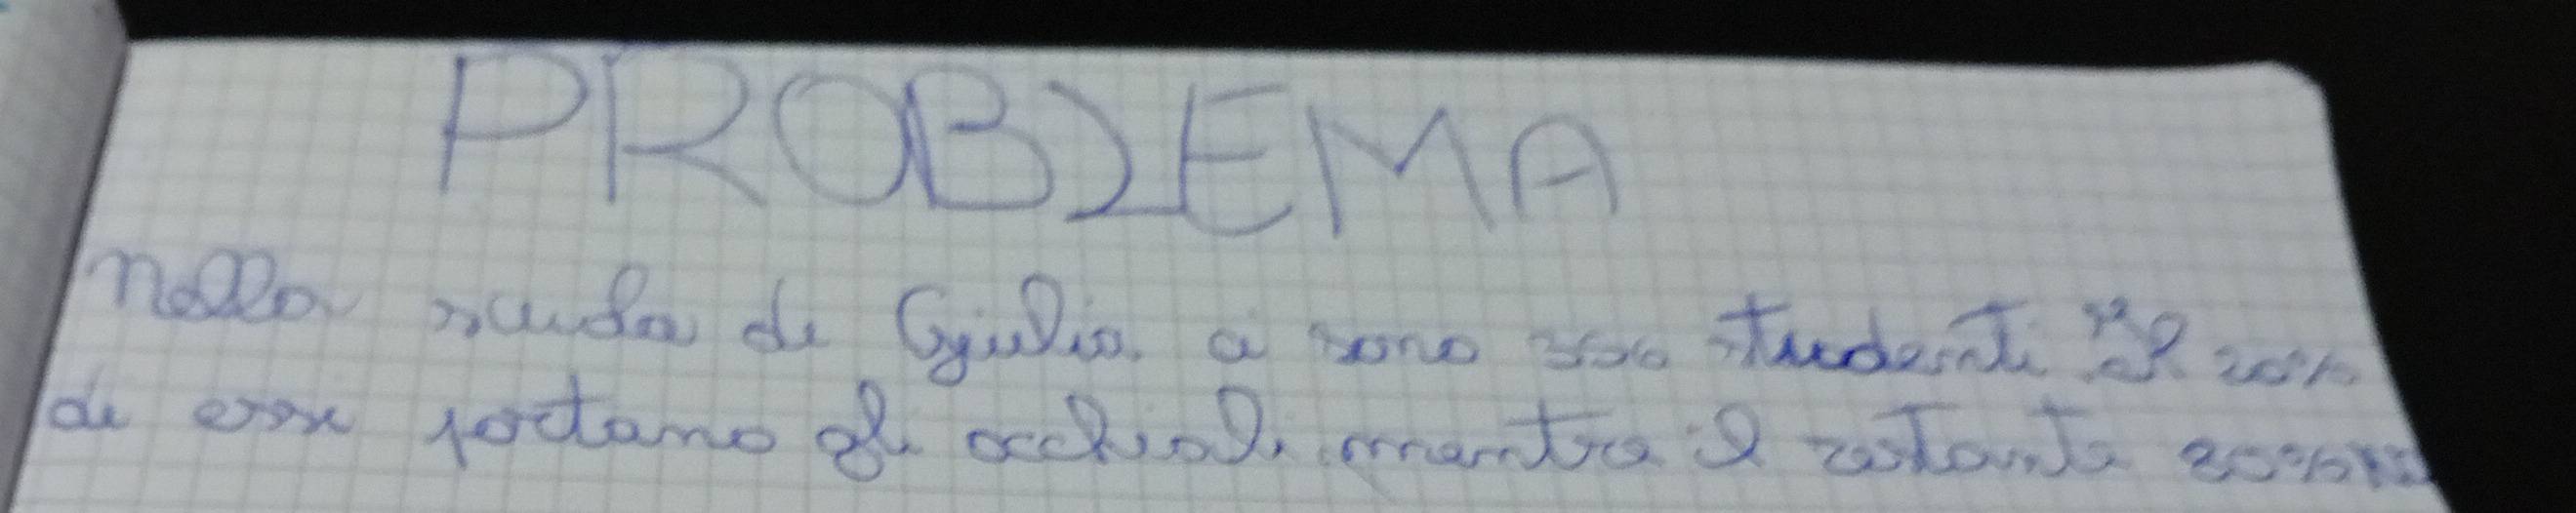 PROBLEMA
Nella scuola di Giulia ci sono 350 studenti il 20%
di essi portano gli occhiali mentre il restante 80%